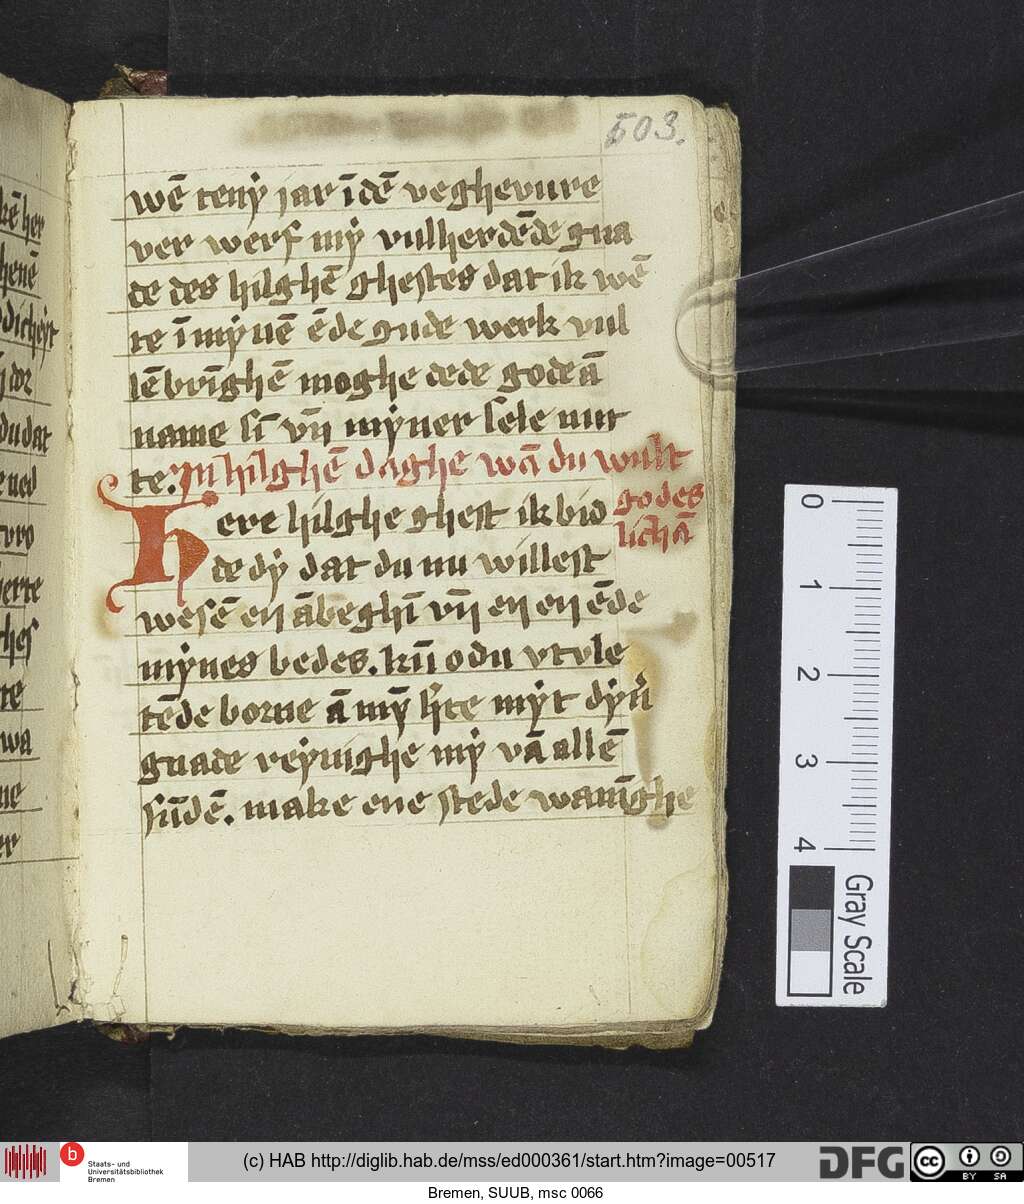 503.
wē renẏ iar ī dē veghevure
ver werf mẏ vulherdēde gna
de des hilghē ghestes dat ik wē
te ī mẏnē ēde gude werk vul
lē brīghē moghe dede gode ā
name sī vn̄ mẏner sele nut
te. In hilghē daghe wā du wult
godes
lichā
Here hilghe ghest ik bid
de dẏ dat du nu willest
wesē en ābeghī vn̄ en en ēde
mẏnes bedes. kū o du vtvle
tēde borne ā mẏ h̓te mẏt dẏn̓
gnade reẏnighe mẏ vā allē
sūdē. make ene stede wanīghe
kē her
henē
dat
ued
erte
re
wa
ne
er
0
1
2
3
4
Gray Scale
b Staats- und
Universitätsbibliothek
Bremen
(c) HAB http://diglib.hab.de/mss/ed000361/start.htm?image=00517
DFG
cc BY SA
Bremen, SUUB, msc 0066